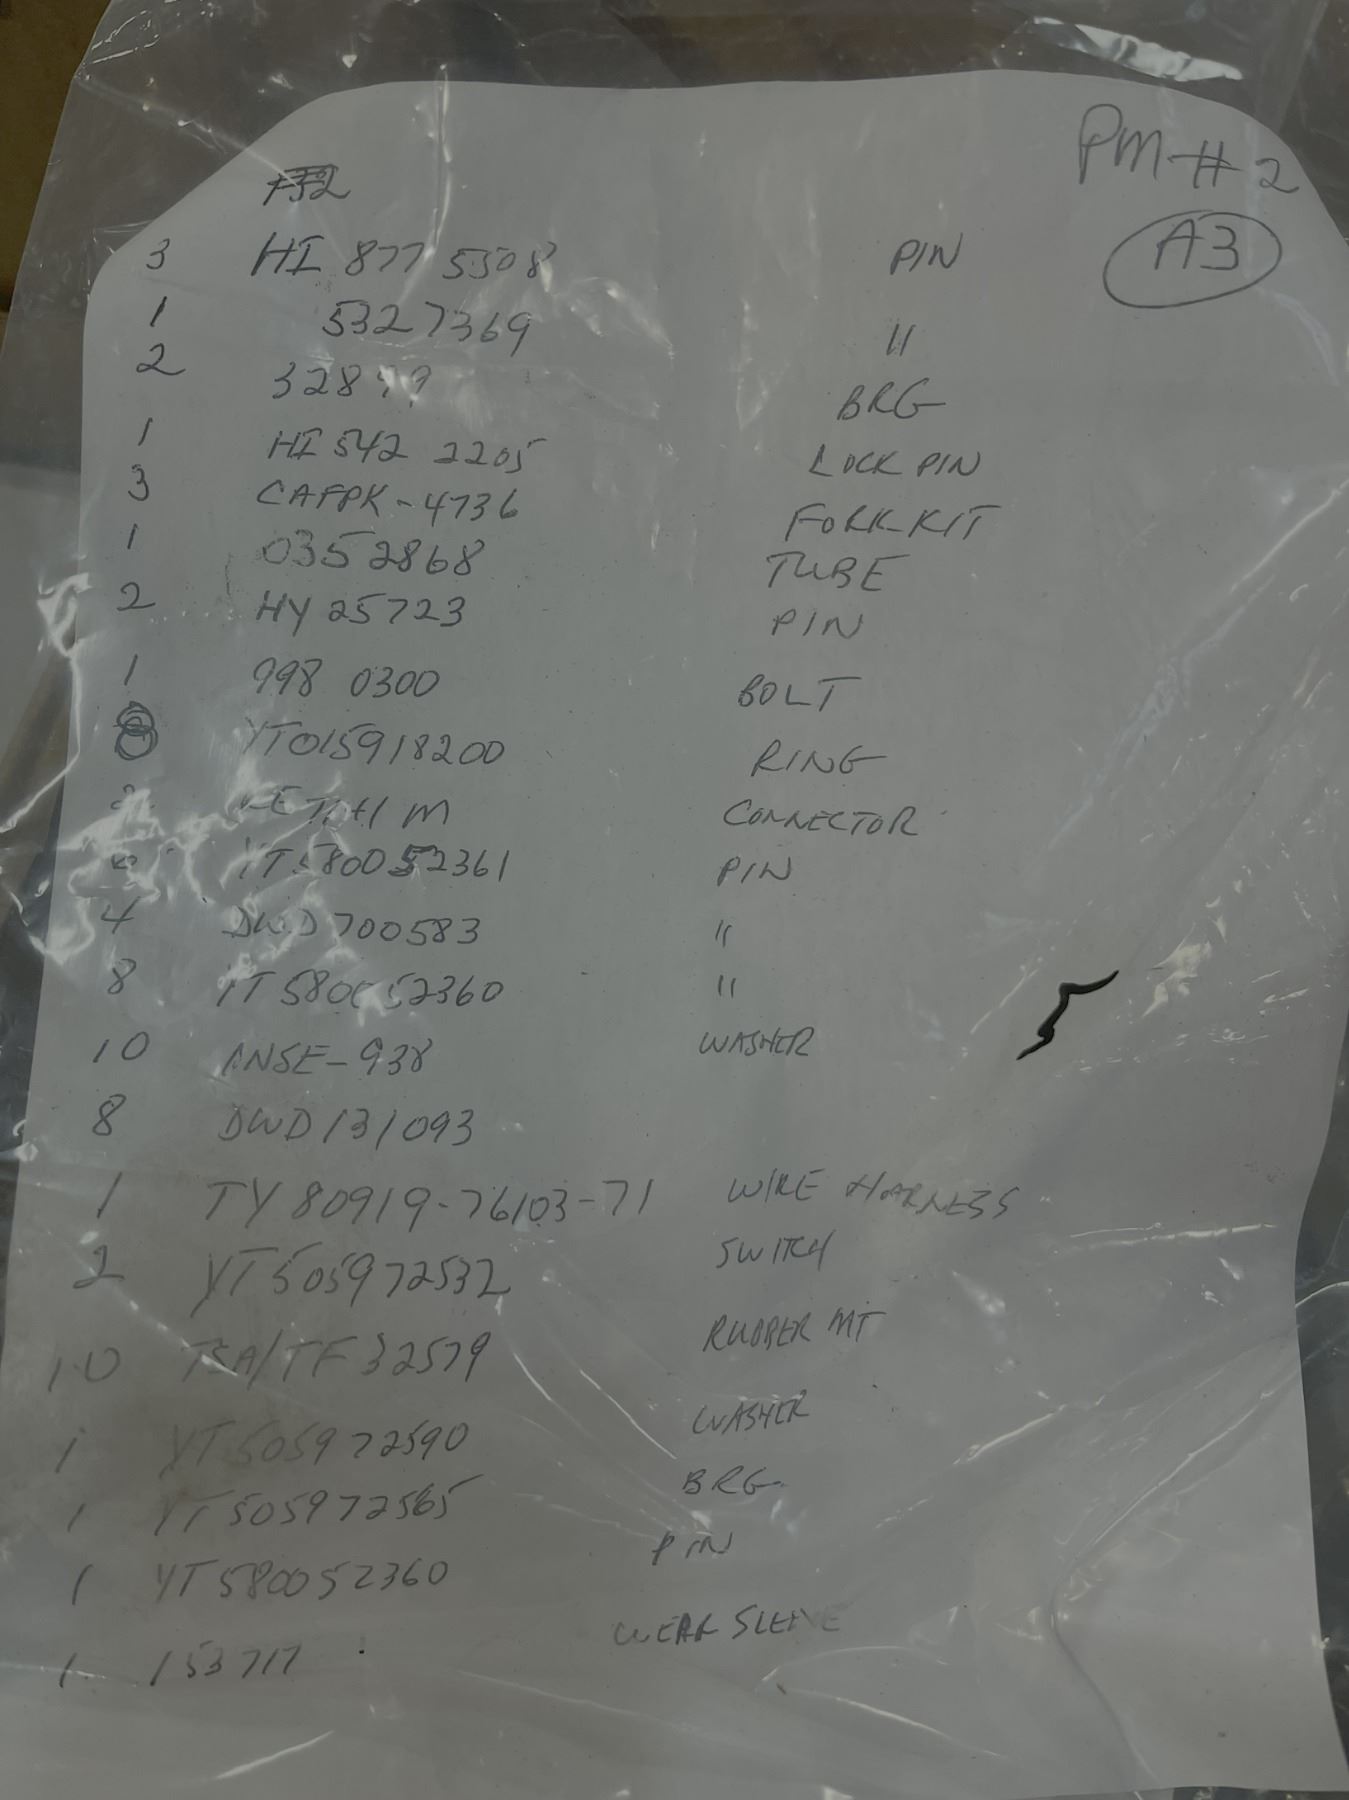 PM # 2
A3
3 HI 877 5508 PIN
1 5327369 "
2 BRG
1 HI 542 2205 LOCK PIN
3 CAFPK-4736 FORK KIT
1 0352868 TUBE
2 HY 25723 PIN
1 998 0300 BOLT
YT015918200 RING
CONNECTOR
YT580052361 PIN
4 DWD700583 "
8 YT580052360 "
10 ANSE-938 WASHER
8 DWD131093
1 TY 80919-76103-71 WIRE HARNESS
2 YT505972532 SWITCH
10 TSA/TF32579 RUBBER MT
1 YT505972590 WASHER
1 YT505972565 BRG
1 YT580052360 PIN
1 153717 WEAR SLEEVE